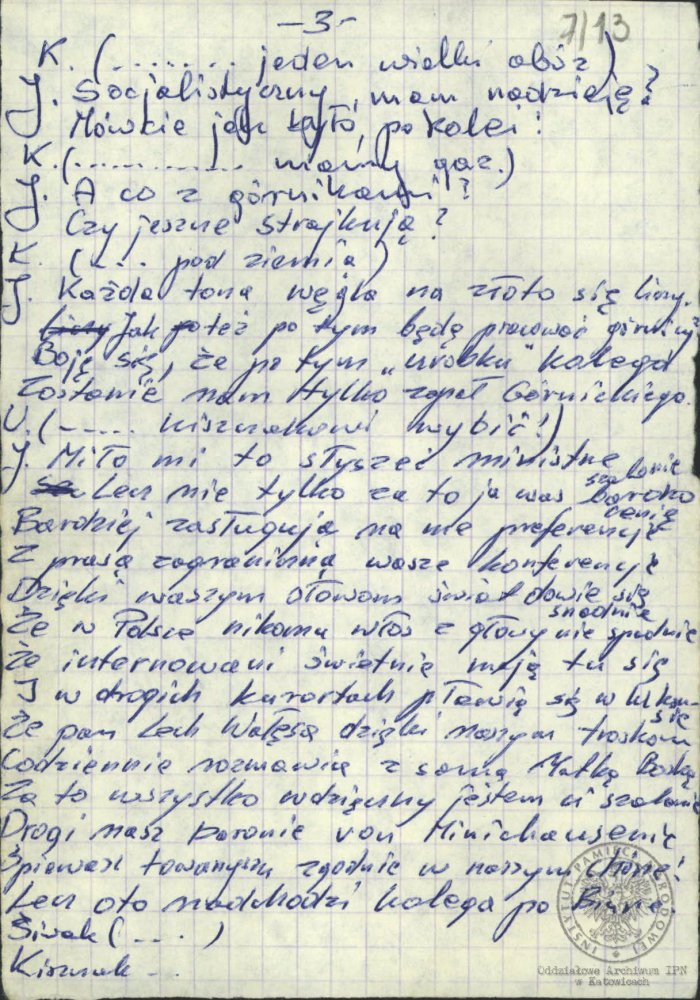 -3-
7/13
K. (........ jeden wielki obóz)
J. Socjalistyczny, mam nadzieję?
Mówcie jak było, po kolei!
K. (............. mamy gaz.)
J. A co z górnikami?
Czy jeszcze strajkują?
K. (.... pod ziemią)
J. Każda tona węgla na złoto się liczy.
Jak też po tym będą pracować górnicy?
Boję się, że po tym „urobku" kolega
Zostanie nam tylko zapał Górnickiego.
U. (..... Kiszczakowi wybić!)
J. Miło mi to słyszeć ministrze
Lecz nie tylko za to ja was szalenie cenię
Bardziej zasługują na me preferencje
Z prasą zagraniczną wasze konferencje
Dzięki waszym słowom świat dowie się snadnie
Że w Polsce nikomu włos z głowy nie spadnie
Że internowani świetnie mają tu się
I w drogich kurortach pławią się w luksusie
Że pan Lech Wałęsa dzięki naszym troskom
Codziennie rozmawia z samą Matką Boską
Za to wszystko wdzięczny jestem ci szalenie
Drogi nasz baronie von Minichausenie
Śpiewasz towarzyszu zgodnie w naszym chórze!
Lecz oto nadchodzi kolega po Biurze.
Siwak (....)
Kiszczak ...
INSTYTUT PAMIĘCI NARODOWEJ
Oddziałowe Archiwum IPN
w Katowicach